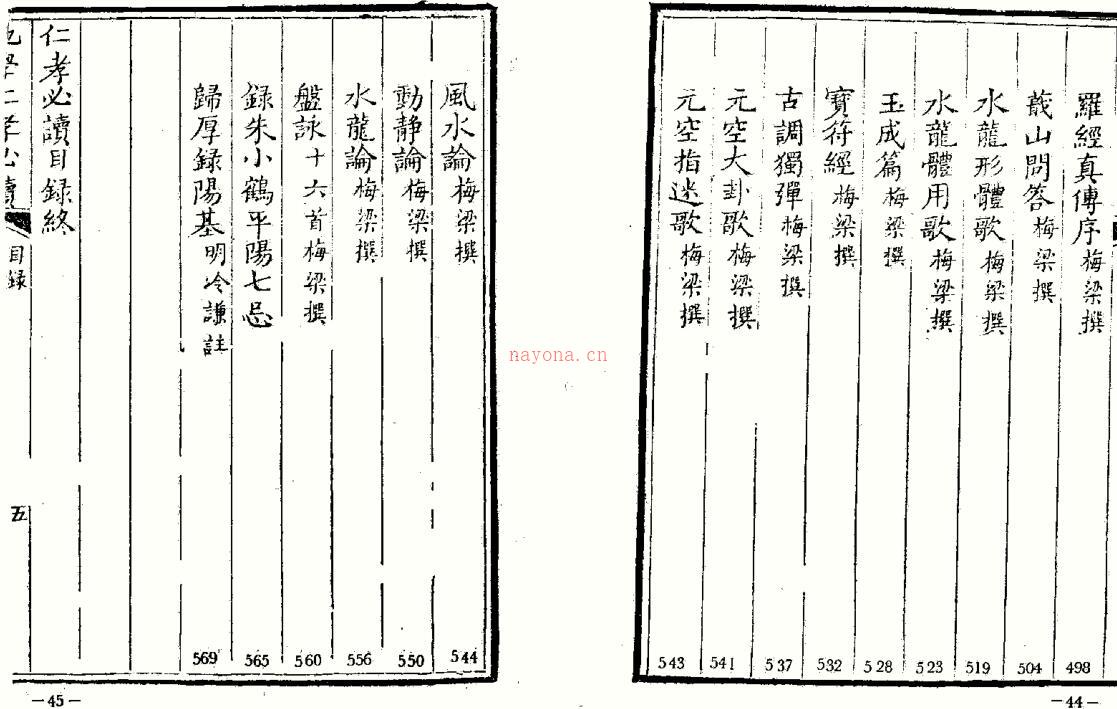 羅經真傳序 梅梁撰 498
蕺山問答 梅梁撰 504
水龍形體歌 梅梁撰 519
水龍體用歌 梅梁撰 523
玉成篇 梅梁撰 528
寶符經 梅梁撰 532
古調獨彈 梅梁撰 537
元空大卦歌 梅梁撰 541
元空指迷歌 梅梁撰 543
－44－
風水論 梅梁撰 544
動靜論 梅梁撰 550
水龍論 梅梁撰 556
盤詠 十六首梅梁撰 560
録朱小鶴平陽七忌 565
歸厚録陽基 明冷謙註 569
仁孝必讀目録終
目録
五
－45－
nayona.cn